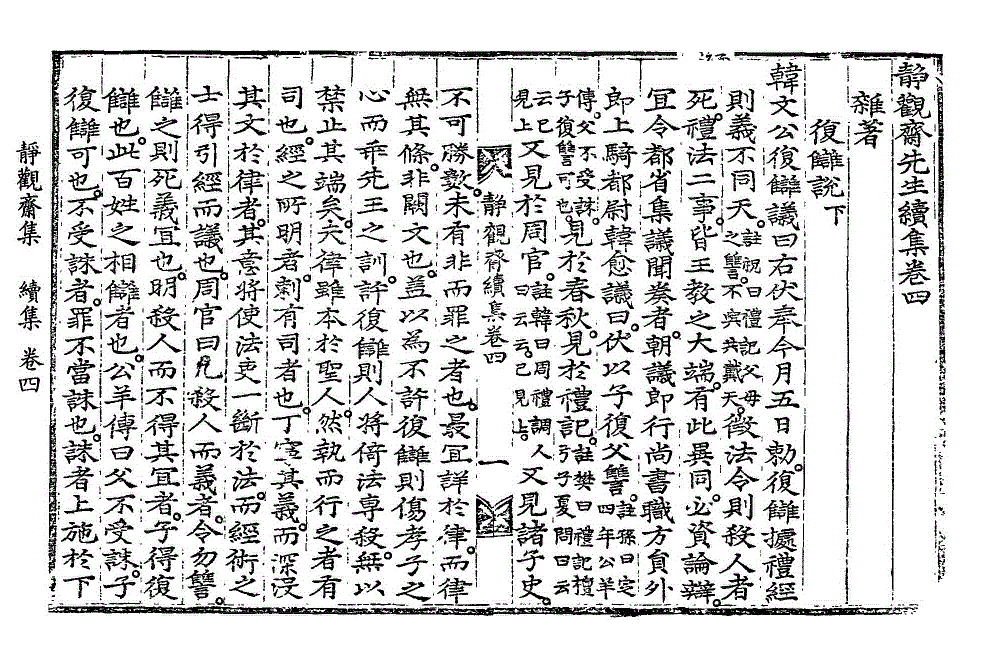 靜觀齋先生續集卷四
雜著
復讎說下
韓文公復讎議曰右伏奉今月五日勅。復讎據禮經
則義不同天。註祝曰禮記父母之讐。不與共戴天。徵法令則殺人者
死。禮法二事。皆王教之大端。有此異同。必資論辯。
宜令都省集議聞奏者。朝議即行尚書職方員外
郎上騎都尉韓愈議曰。伏以子復父讐。註孫曰定四年公羊
傳。父不受誅。子復讐可也。見於春秋。見於禮記。註樊曰禮記檀弓子夏問曰云
云已見上又見於周官。註韓曰周禮調人曰云云。已見上。又見諸子史。
靜觀齋續集卷四 一
不可勝數。未有非而罪之者也。最宜詳於律。而律
無其條。非闕文也。蓋以為不許復讎則傷孝子之
心而乖先王之訓。許復讎則人將倚法專殺。無以
禁止其端矣。夫律雖本於聖人。然執而行之者有
司也。經之所明者。制有司者也。丁寧其義。而深沒
其文於律者。其意將使法吏一斷於法。而經術之
士得引經而議也。周官曰凡殺人而義者。令勿讐。
讎之則死義宜也。明殺人而不得其宜者。子得復
讎也。此百姓之相讎者也。公羊傳曰父不受誅。子
復讎可也。不受誅者。罪不當誅也。誅者上施於下
靜觀齋集 續集 卷四